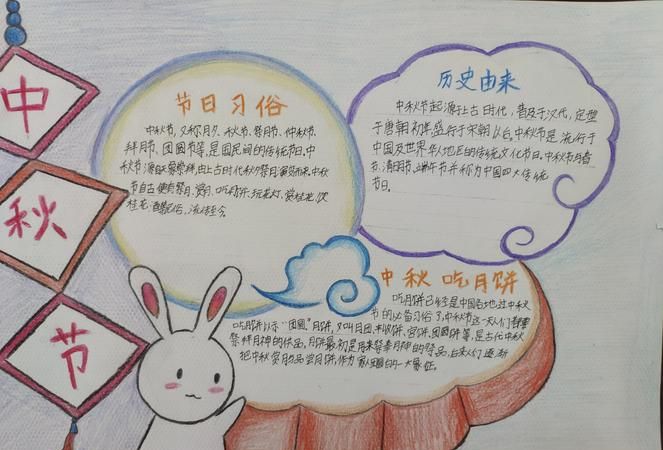 中
秋
节
节日习俗
中秋节,又称月夕、秋节、祭月节、仲秋节、
拜月节、团圆节等,是国民间的传统节日。中
秋节源自天象崇拜,由上古时代秋夕祭月演变而来。中秋
节自古便有祭月、赏月、吃月饼、玩花灯、赏桂花、饮
桂花酒等民俗,流传至今。
历史由来
中秋节起源于上古时代,普及于汉代,定型
于唐朝初年,盛行于宋朝以后。中秋节是流行于
中国及世界华人地区的传统文化节日。中秋节与春
节、清明节、端午节并称为中国四大传统
节日。
中秋 吃月饼
吃月饼已经是中国各地过中秋
节的必备习俗了,中秋节这一天人们都要
吃月饼以示“团圆”月饼,又叫月团、丰收饼、宫饼、团圆饼等,是古代中秋
祭拜月神的供品。月饼最初是用来祭奉月神的祭品,后来人们逐渐
把中秋赏月与品尝月饼,作为家人团圆的一大象征。